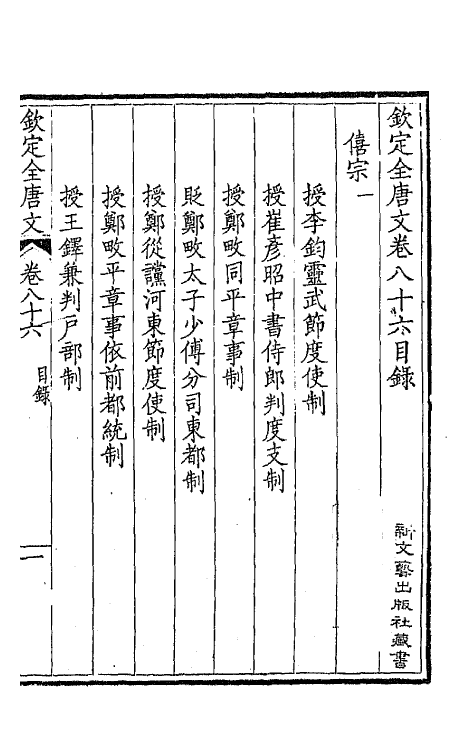 欽定全唐文卷八十六目錄
新文藝出版社藏書
僖宗一
授李鈞靈武節度使制
授崔彥昭中書侍郎判度支制
授鄭畋同平章事制
貶鄭畋太子少傅分司東都制
授鄭從讜河東節度使制
授鄭畋平章事依前都統制
授王鐸兼判戶部制
欽定全唐文 卷八十六 目錄 一